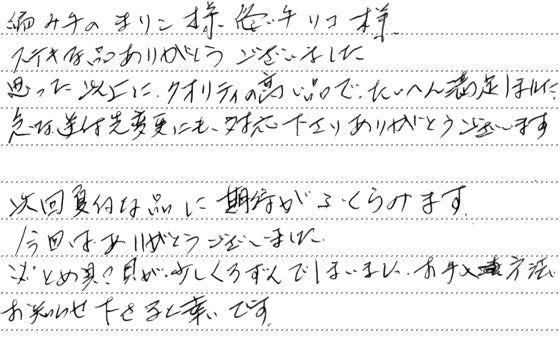 編み手のまりこ様、使い手リコ様
ステキな品ありがとうございました
思った以上に、クオリティの高い品で、たいへん満足しました
急な送付先変更にも、対応下さりありがとうございます
次回 な品に期待がふくらみます。
今回はありがとうございました。
とめ具？貝が、少しくろずんでしまいました、お手入 方法
お知らせ下さると幸いです。